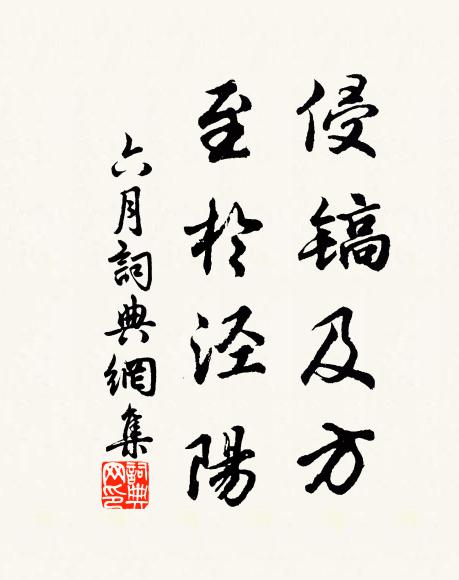 侵镐及方
至於泾陽
六月詞典網集
詞典
网印